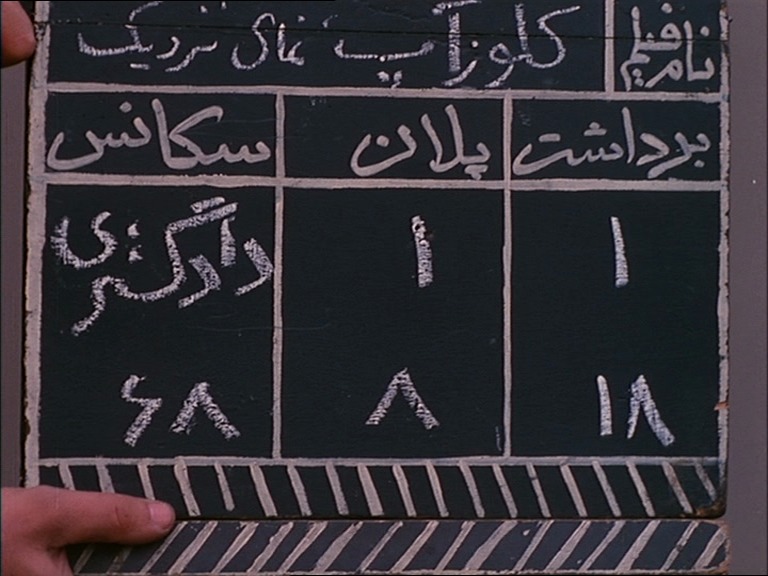 نام فیلم کلوزآپ نمای نزدیک
برداشت پلان سکانس
۱ ۱ دادگستری
۱۸ ۸ ۶۸